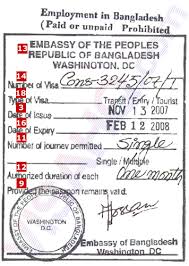 Employment in Bangladesh
(Paid or unpaid Prohibited
13 EMBASSY OF THE PEOPLES
REPUBLIC OF BANGLADESH
WASHINGTON, DC
14 Number of Visa Cons-3245/07/1
18 Type of Visa Transit / Entry / Tourist
3 Date of Issue NOV 13 2007
16 Date of Expiry FEB 12 2008
11 Number of journey permitted Single
Single / Multiple
12 Authorized duration of each One month
9 Provided the passport remains valid.
WASHINGTON
D.C.
Embassy of Bangladesh
Washington DC